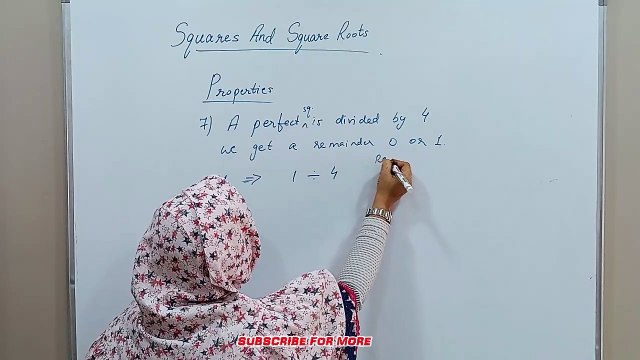 Squares And Square Roots
Properties
7) A perfect sq. is divided by 4
we get a remainder 0 or 1.
⇒ 1 ÷ 4
SUBSCRIBE FOR MORE